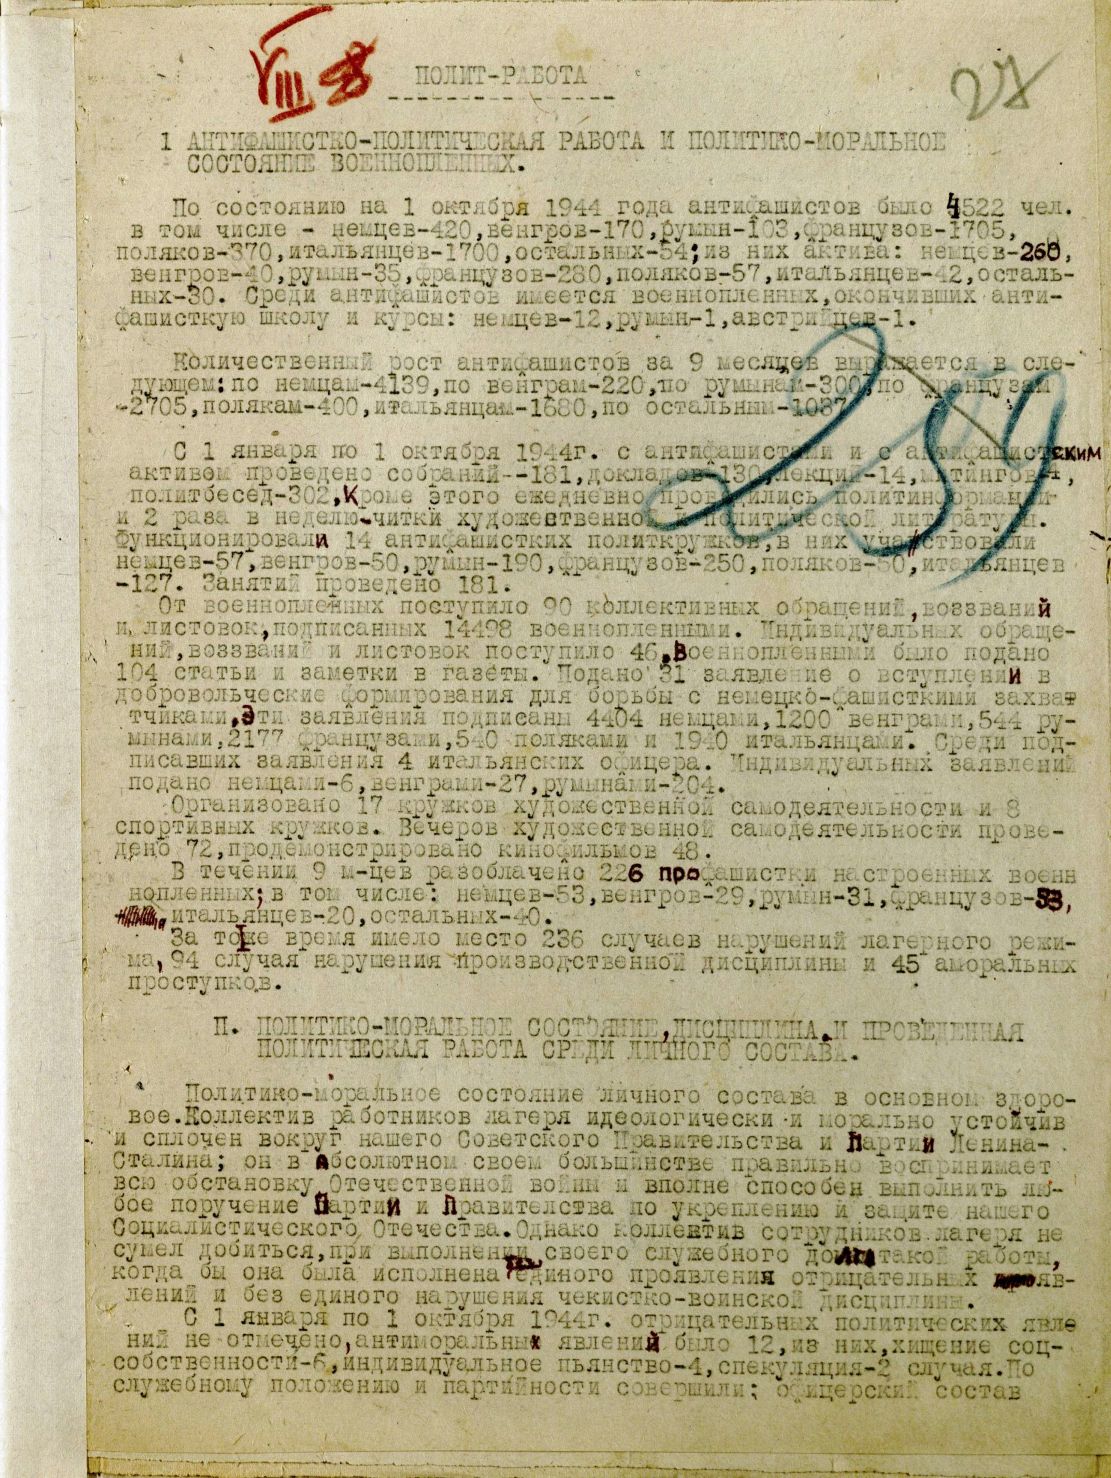 VIII 28
27
ПОЛИТ-РАБОТА
1 АНТИФАШИСТКО-ПОЛИТИЧЕСКАЯ РАБОТА И ПОЛИТИКО-МОРАЛЬНОЕ
СОСТОЯНИЕ ВОЕННОПЛЕННЫХ.
По состоянию на 1 октября 1944 года антифашистов было 4522 чел.
в том числе - немцев-420,венгров-170,румын-103,французов-1705,
поляков-370,итальянцев-1700,остальных-54;из них актива: немцев-260,
венгров-40,румын-35,французов-280,поляков-57,итальянцев-42,осталь-
ных-30. Среди антифашистов имеется военнопленных,окончивших анти-
фашисткую школу и курсы: немцев-12,румын-1,австрийцев-1.
Количественный рост антифашистов за 9 месяцев выражается в сле-
дующем:по немцам-4139,по венграм-220,по румынам-300,по французам
-2705,полякам-400,итальянцам-1680,по остальным-1037
259
С 1 января по 1 октября 1944г. с антифашистами и с антифашистским
активом проведено собраний--181,докладов-130,лекций-14,митингов-1,
политбесед-302,Кроме этого ежедневно проводились политинформации
и 2 раза в неделю-читки художественной и политической литературы.
Функционировали 14 антифашистких политкружков,в них участвовали
немцев-57,венгров-50,румын-190,французов-250,поляков-50,итальянцев
-127. Занятий проведено 181.
От военнопленных поступило 90 коллективных обращений,воззваний
и листовок,подписанных 14498 военнопленными. Индивидуальных обраще-
ний,воззваний и листовок поступило 46.Военнопленными было подано
104 статьи и заметки в газеты. Подано 31 заявление о вступлении в
добровольческие формирования для борьбы с немецко-фашисткими захват
тчиками,Эти заявления подписаны 4404 немцами,1200 венграми,544 ру-
мынами,2177 французами,540 поляками и 1940 итальянцами. Среди под-
писавших заявления 4 итальянских офицера. Индивидуальных заявлений
подано немцами-6,венграми-27,румынами-204.
Организовано 17 кружков художественной самодеятельности и 8
спортивных кружков. Вечеров художественной самодеятельности прове-
дено 72,продемонстрировано кинофильмов 48.
В течении 9 м-цев разоблачено 226 профашистки настроенных военн
нопленных;в том числе: немцев-53,венгров-29,румын-31,французов-53,
итальянцев-20,остальных-40.
За тоже время имело место 236 случаев нарушений лагерного режи-
ма,94 случая нарушения производственной дисциплины и 45 аморальных
проступков.
П. ПОЛИТИКО-МОРАЛЬНОЕ СОСТОЯНИЕ,ДИСЦИПЛИНА И ПРОВЕДЕННАЯ
ПОЛИТИЧЕСКАЯ РАБОТА СРЕДИ ЛИЧНОГО СОСТАВА.
Политико-моральное состояние личного состава в основном здоро-
вое.Коллектив работников лагеря идеологически и морально устойчив
и сплочен вокруг нашего Советского Правительства и Партии Ленина-
Сталина; он в абсолютном своем большинстве правильно воспринимает
всю обстановку Отечественной войны и вполне способен выполнить лю-
бое поручение Партии и Правителства по укреплению и защите нашего
Социалистического Отечества.Однако коллектив сотрудников лагеря не
сумел добиться,при выполнении своего служебного долга такой работы,
когда бы она была исполнена единого проявления отрицательных яв-
лений и без единого нарушения чекистко-воинской дисциплины.
С 1 января по 1 октября 1944г. отрицательных политических явле
ний не отмечено,антиморальных явлений было 12,из них,хищение соц-
собственности-6,индивидуальное пьянство-4,спекуляция-2 случая.По
служебному положению и партийности совершили; офицерский состав